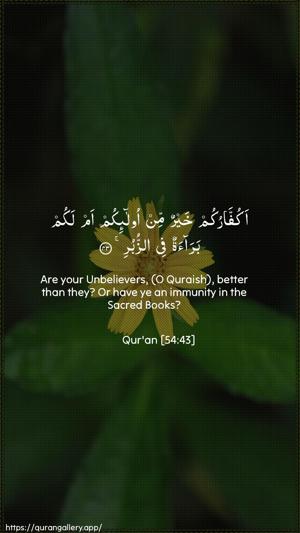 اَكُفَّارُكُمْ خَيْرٌ مِّنْ اُولٰٓئِكُمْ اَمْ لَكُمْ
بَرَآءَةٌ فِى الزُّبُرِ ۚ ۝٤٣
Are your Unbelievers, (O Quraish), better
than they? Or have ye an immunity in the
Sacred Books?
Qur'an [54:43]
https://qurangallery.app/